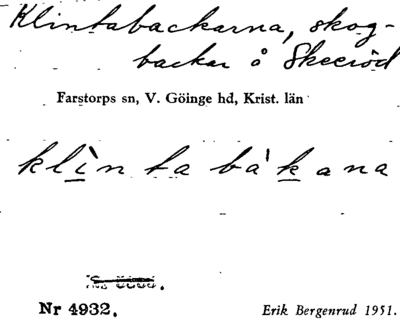 Klintabackarna, skog-
backar å Skeeröd
Farstorps sn, V. Göinge hd, Krist. län
klìn ta bà'kana
Nr 4932.
Erik Bergenrud 1951.